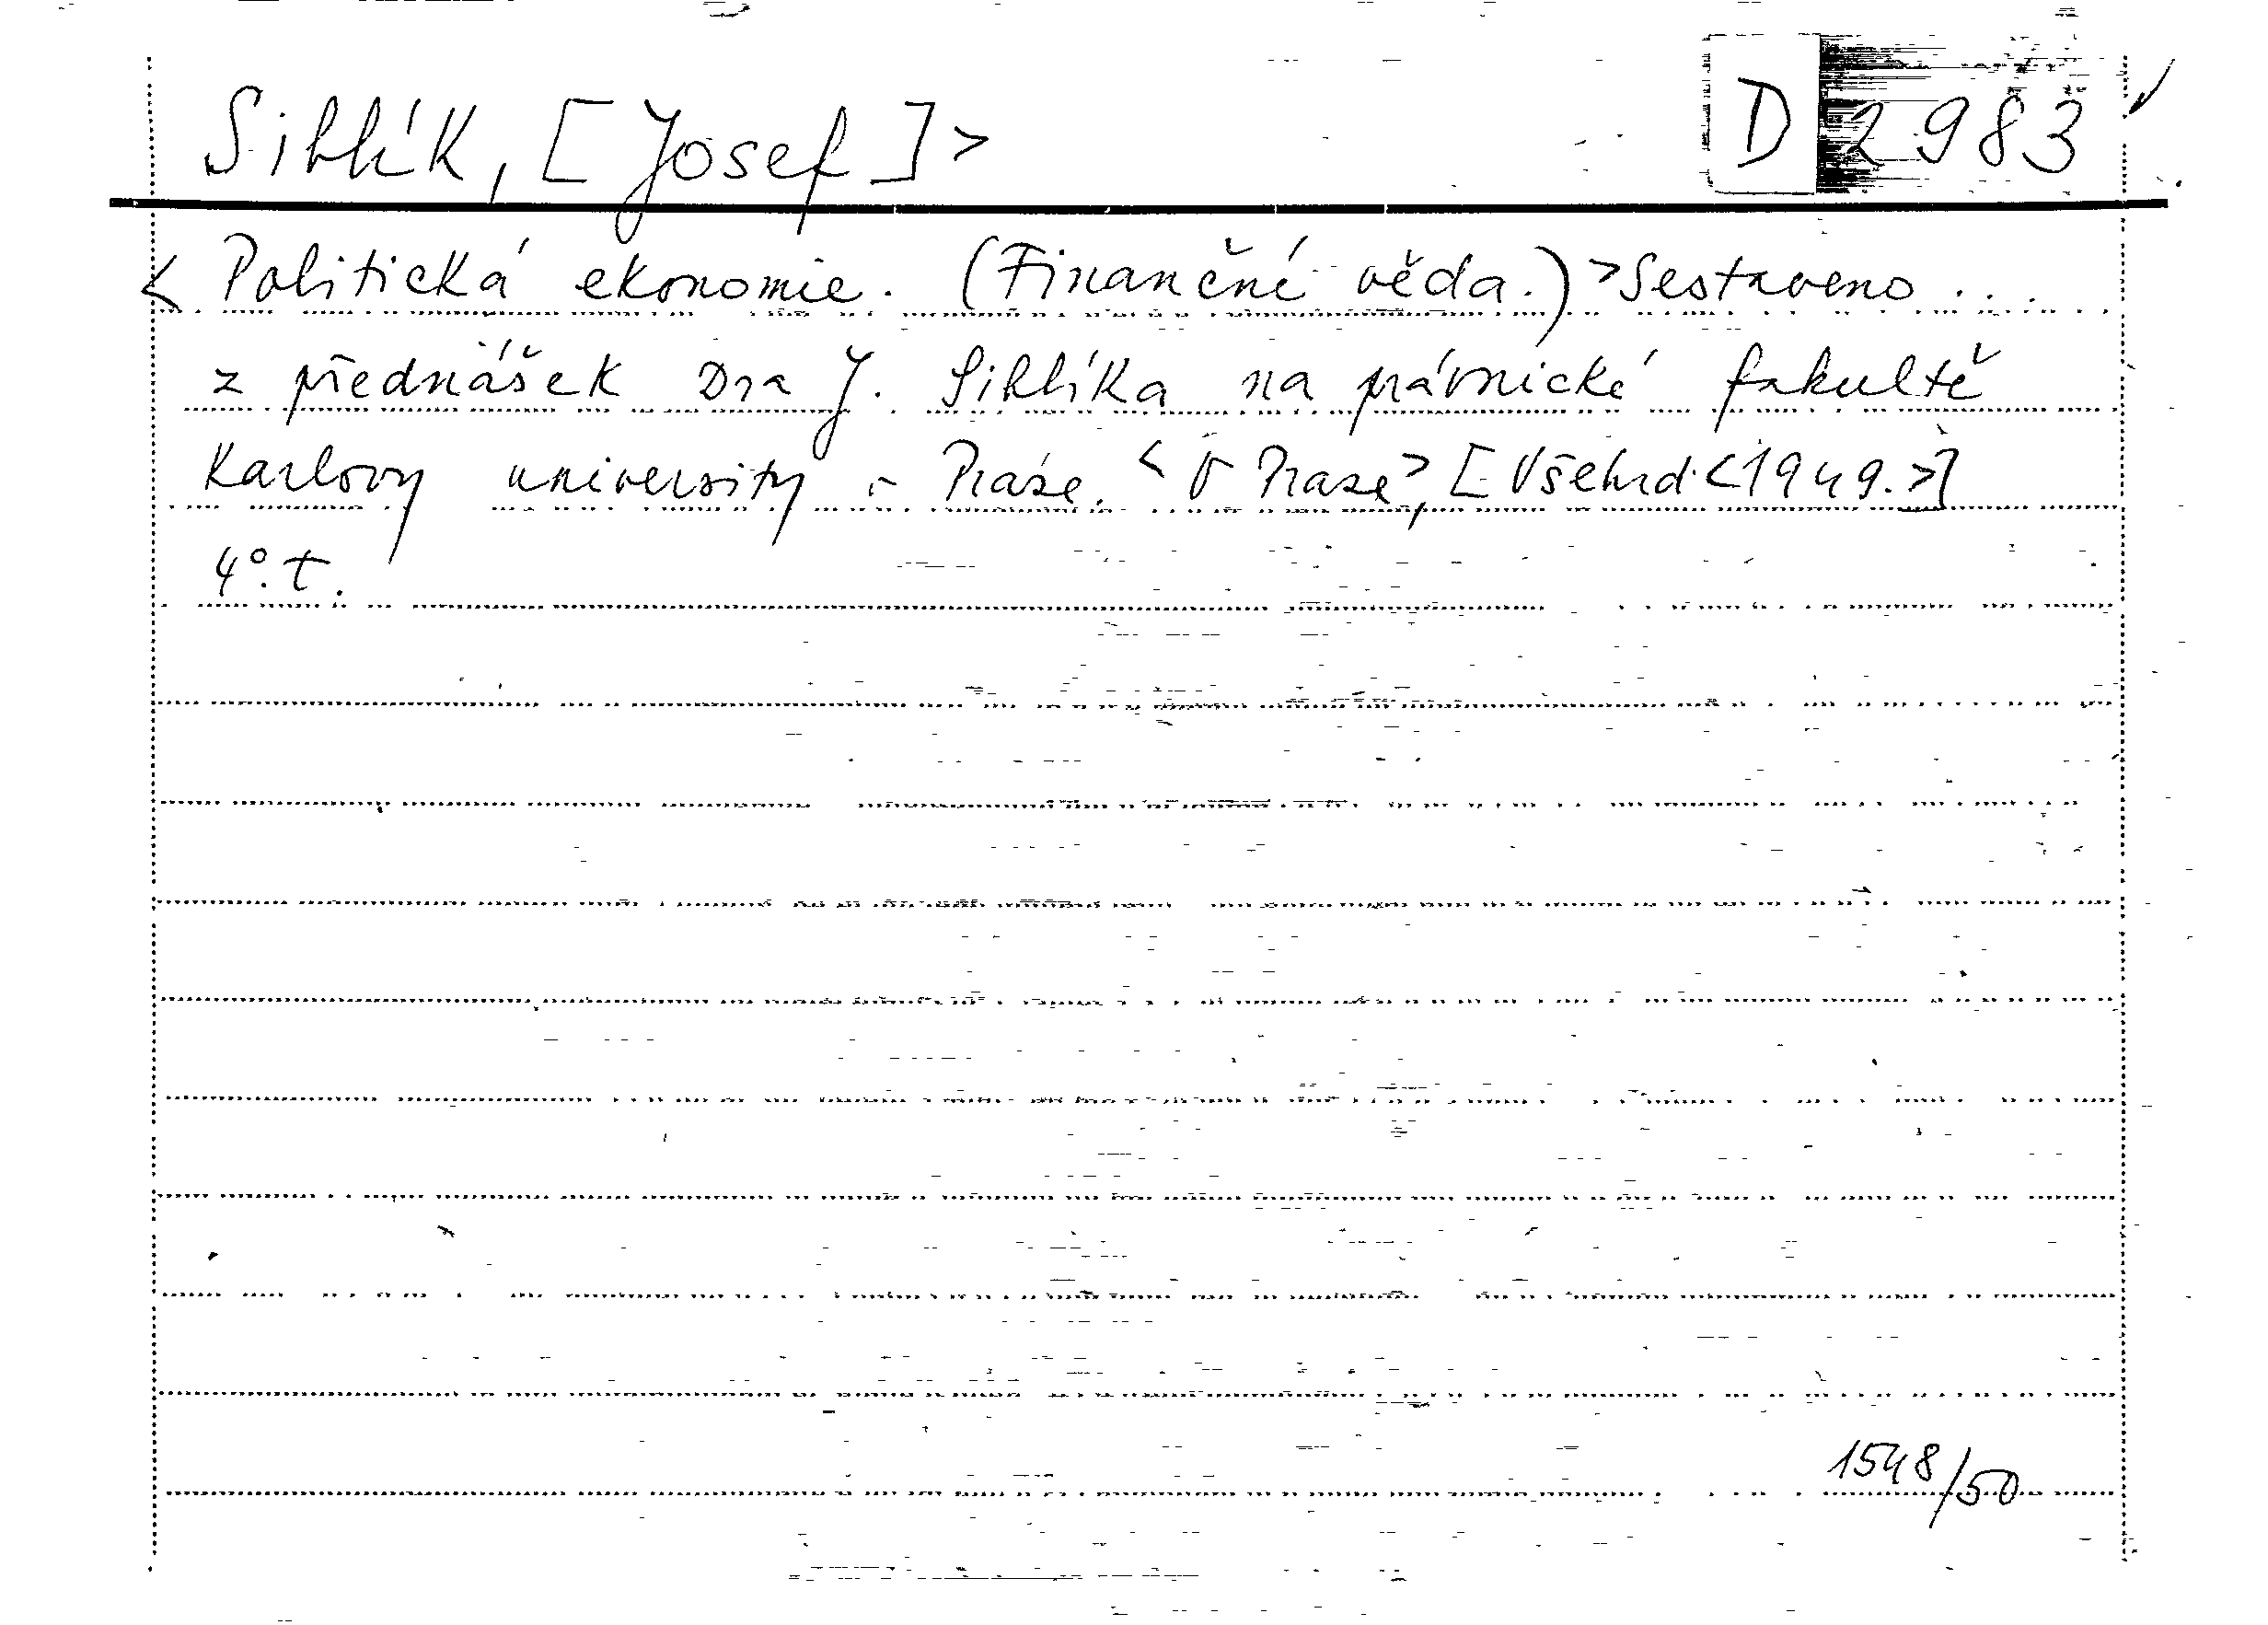 Siblík, [Josef]>
D 2983
< Politická ekonomie. (Finanční věda.) > Sestaveno ...
z přednášek Dra J. Siblíka na právnické fakultě
Karlovy university v Praze. < V Praze>, [Všehrd <1949.>]
4°. t.
1548/50